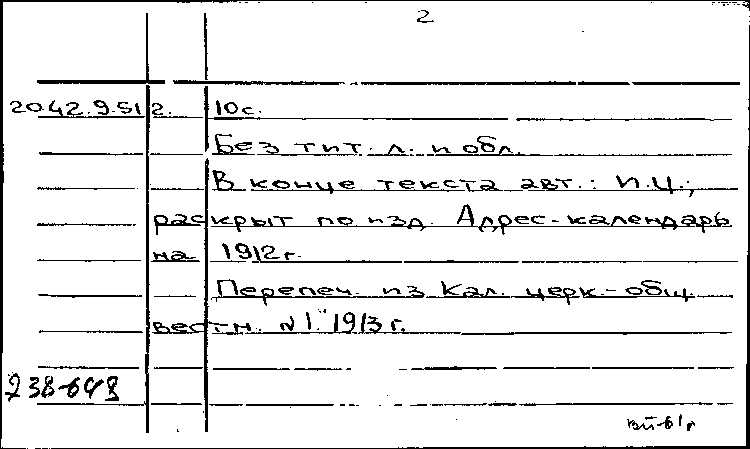 2
20.42.9.51 г. 10 с.
Без тит. л. и обл.
В конце текста авт.: И.Ц.;
раскрыт по изд. Адрес-календарь
на 1912 г.
Перепеч. из Кал. церк.-общ.
вестн. №1. 1913 г.
238-648